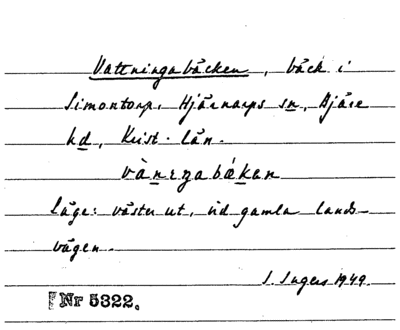 Vattningabäcken, bäck i
Simontorp, Hjärnarps sn, Bjäre
hd, Krist. län.
vànɩɳabǽkan
Läge: väster ut, vid gamla lands-
vägen.
I. Ingers 1949.
Nr 5322.